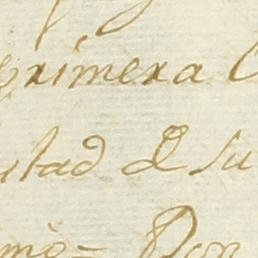 primera
itad de su
mo= Don